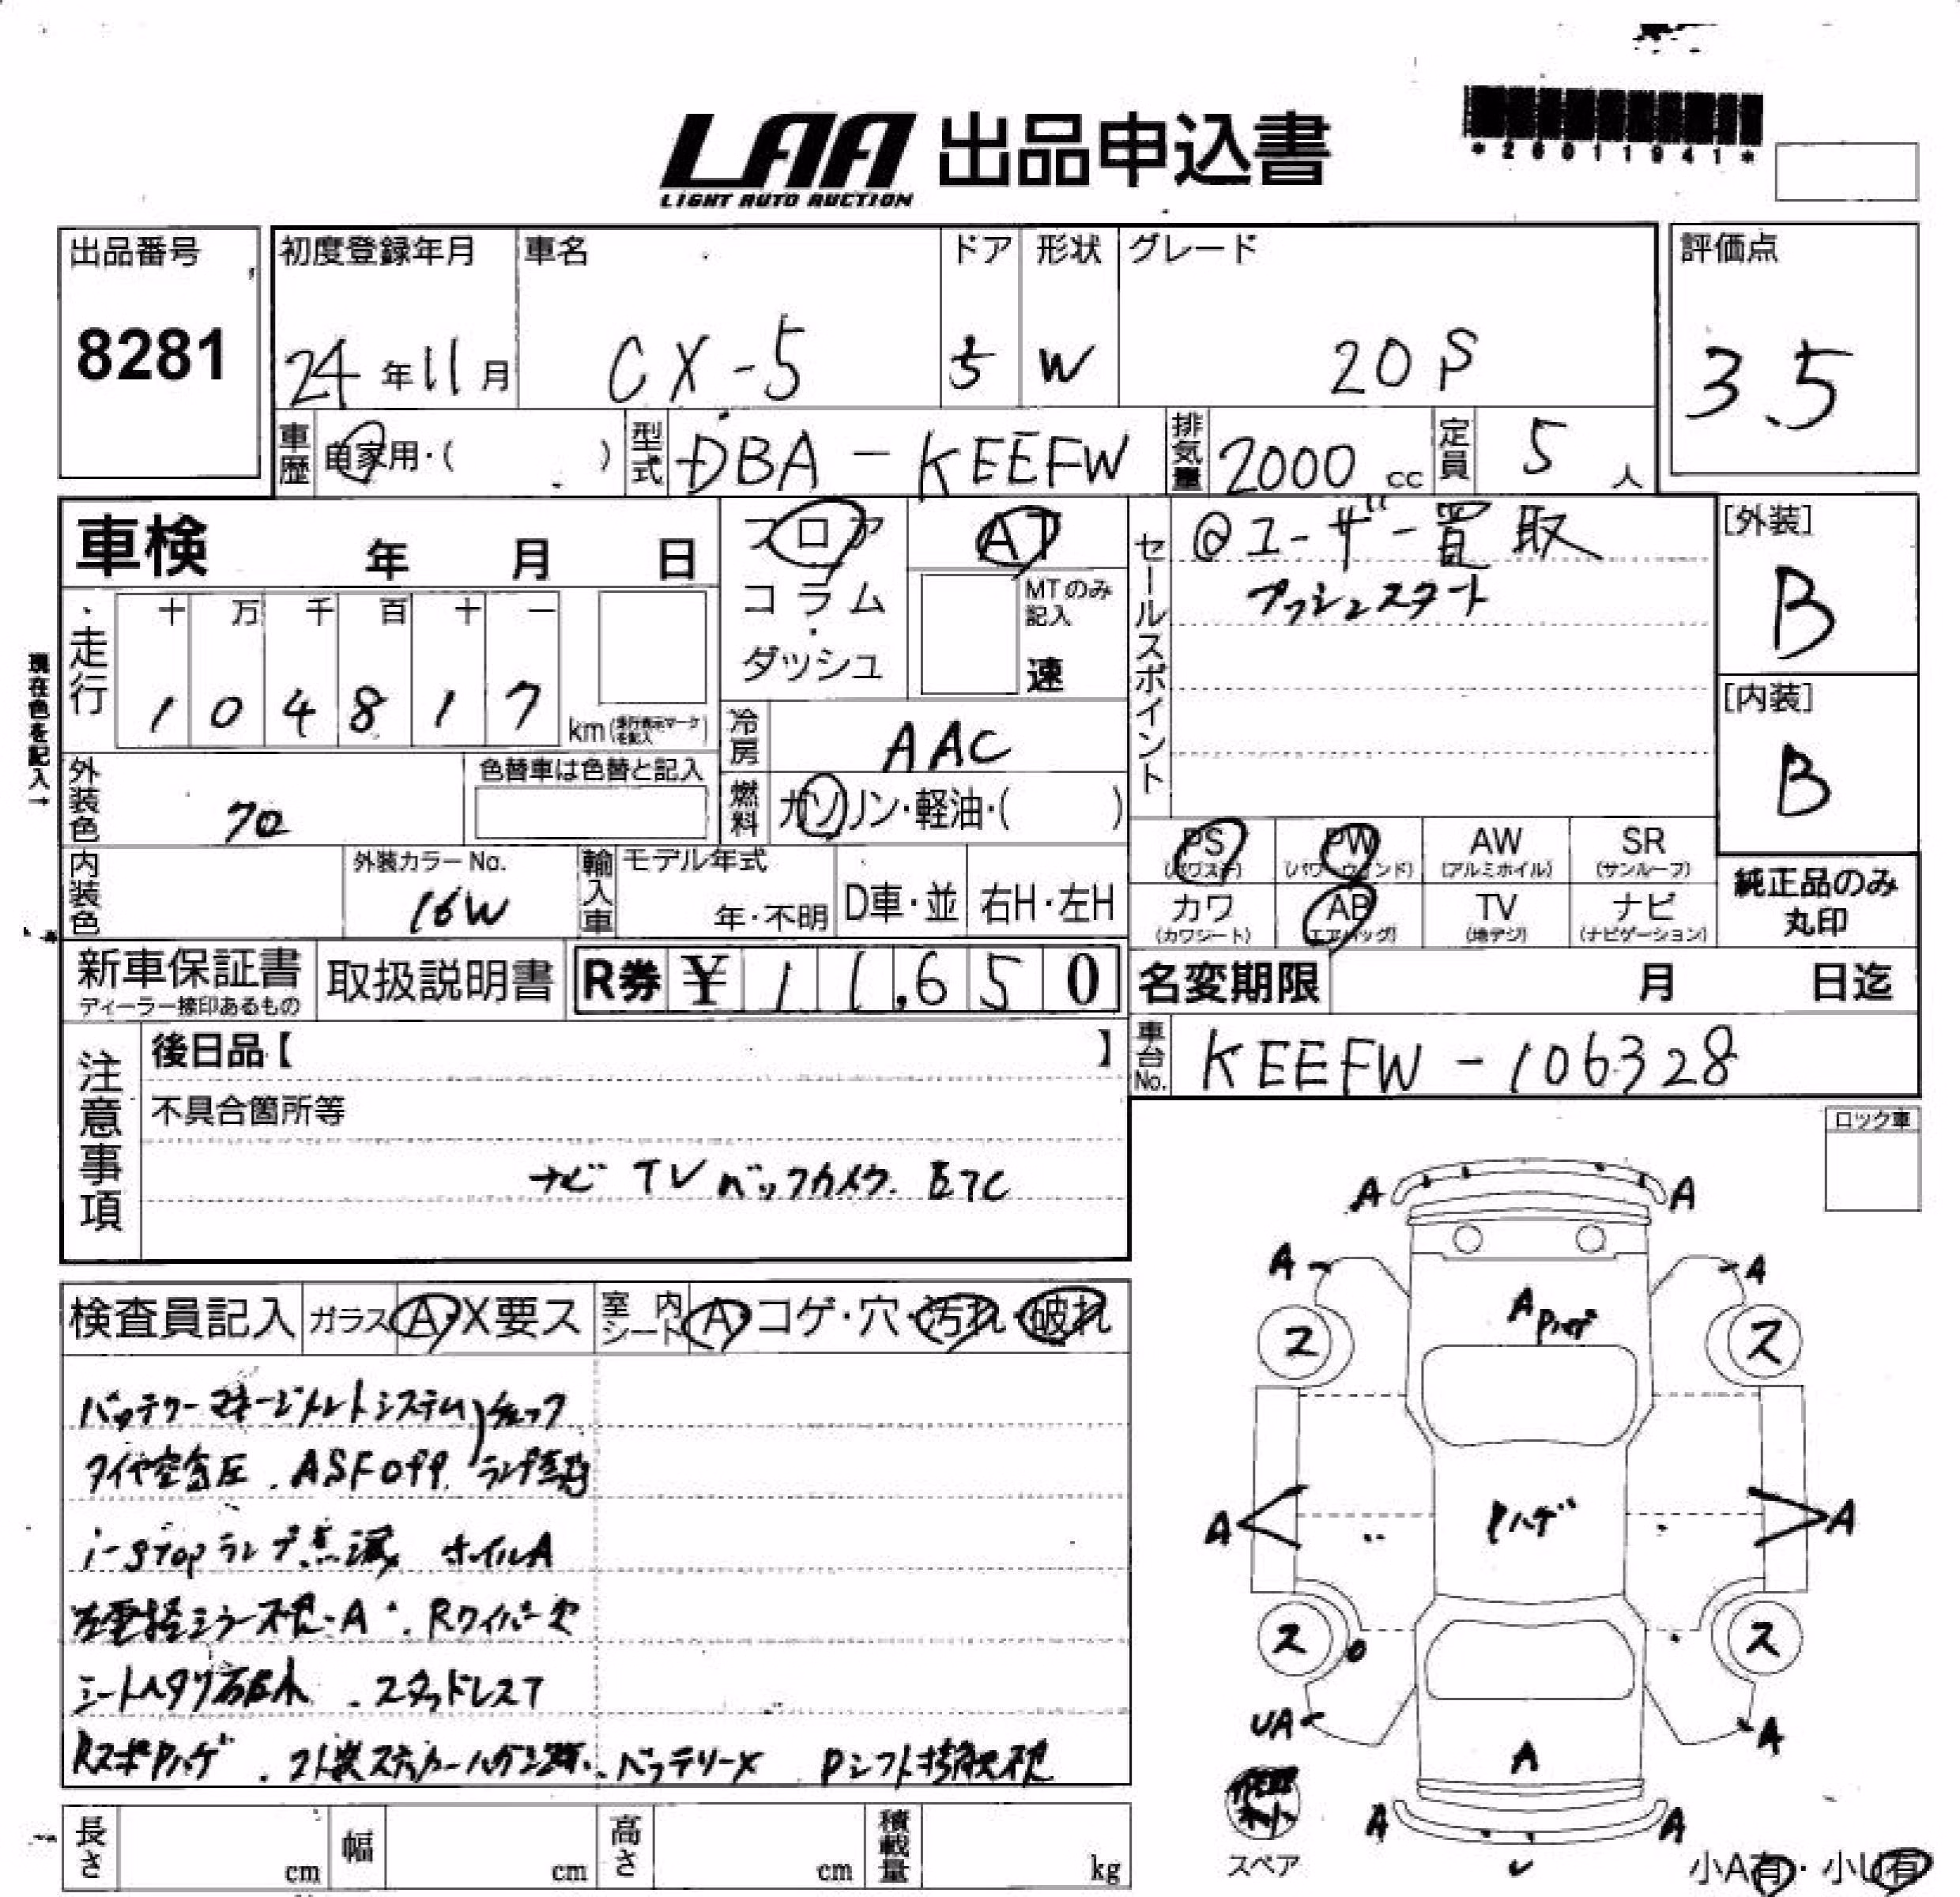 *26011941*
LAA 出品申込書
LIGHT AUTO AUCTION
出品番号 初度登録年月 車名 ドア 形状 グレード 評価点
8281 24年11月 CX-5 5 W 20S 3.5
車歴 自家用・( ) 型式 DBA-KEEFW 排気量 2000cc 定員 5人
車検 年 月 日 フロア AT セールスポイント @ユーザー買取 [外装]
プッシュスタート B
コラム MTのみ記入
ダッシュ 速
走行 十 万 千 百 十 一
1 0 4 8 1 7 km(走行表示マークを記入)
現在色を記入→
[内装]
B
冷房 AAC
外装色 色替車は色替と記入
燃料 ガソリン・軽油・( )
PS PW AW SR
(パワステ) (パワーウィンド) (アルミホイル) (サンルーフ)
カワ AB TV ナビ
(カワシート) (エアバッグ) (地デジ) (ナビゲーション)
純正品のみ
丸印
内装色 外装カラーNo. 16W 輸入車 モデル年式 年・不明 D車・並 右H・左H
新車保証書 取扱説明書 R券 ¥11,650 名変期限 月 日迄
ディーラー捺印あるもの
車台No. KEEFW-106328
注意事項 後日品【 】
不具合箇所等
ナビ TV バックカメラ. ETC
ロック車
検査員記入 ガラス A・X要ス 室内シート A・コゲ・穴・汚れ・破れ
バッテリーマネージメントシステム チェック
タイヤ空気圧. ASFOFF. ランプ点灯
i-stopランプ点滅 ホイルA
A. Rワイパー欠
スタッドレスT
バッテリーX
A A
A A
A Pハゲ
ス ス
A Pハゲ A
ス ス
UA A
A
A A
スペア
小A有・小U有
長さ cm 幅 cm 高さ cm 積載量 kg